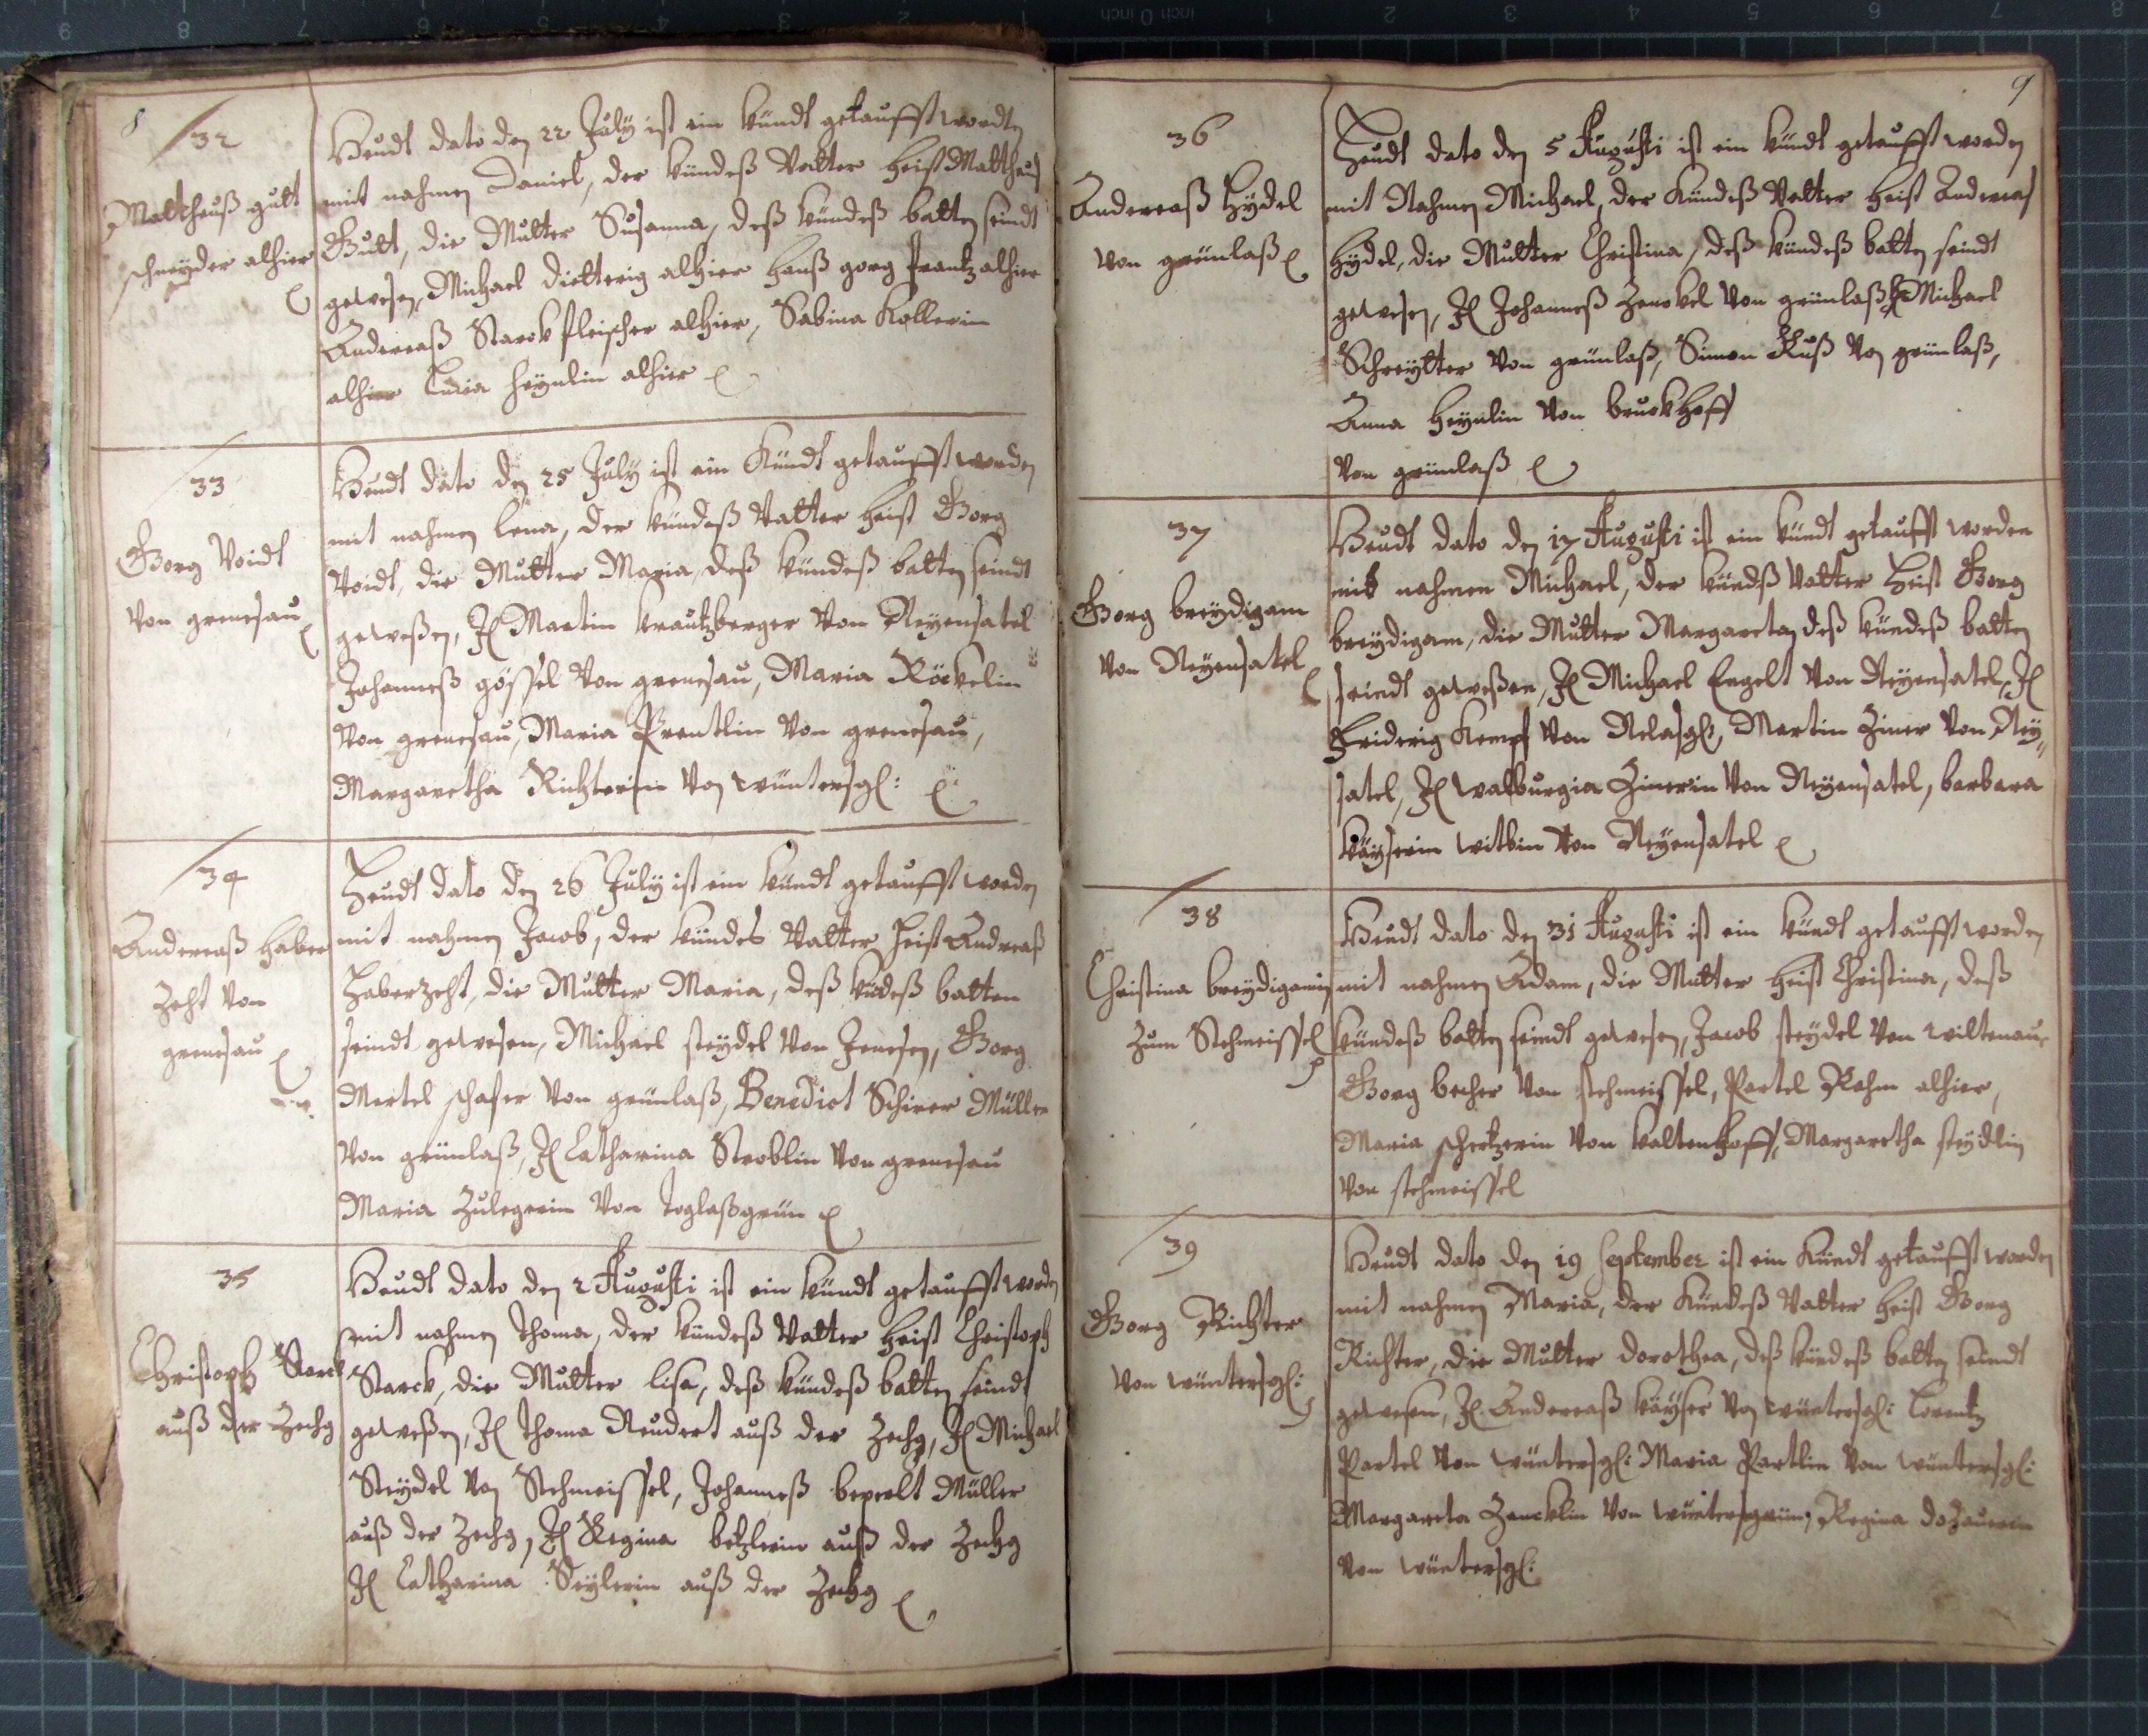 8
32
Mattheuß gutt
schneyder alhier
Heudt dato den 22 July ist ein kündt getaufft worden
mit nahmen Daniel, der kündeß Vatter heist Matthaus
Gutt, die Mutter Susanna, deß kündeß batten seindt
gewesen, Michael dietterig alhier hanß gorg frantz alhier
Andereaß Starck fleischer alhier, Sabina Kollerin
alhier Lucia heynlin alhier
33
Gorg Voidt
Von grenesau
Heudt dato den 25 July ist ein Kündt getaufft worden
mit nahmen lena, der kündeß Vatter heist Gorg
Voidt, die Mutter Maria, deß kündeß batten seindt
geweßen, It Martin krautzberger Von Neyensatel
Johanneß gössel Von grenesau, Maria Röckelin
Von grenesau, Maria Prentlin Von grenesau,
Margaretha Richterin Von wüntersg:
34
Andereaß haber
Zeht Von
grenesau
Heudt dato den 26 July ist ein kündt getaufft worden
mit nahmen Jacob, der kündes Vatter heist Andreaß
Haberzeht, die Mutter Maria, deß küdeß batten
seindt gewesen, Michael steydel Von Jenesen, Gorg
Mertel schafer Von grünlaß, Benedict Schirer Müller
Von grünlaß, It Catharina Stroblin Von grenesau
Maria Zulegerin Von toglaßgrün
35
Christoph Starck
auß der Zech
Heudt dato den 2 Augusti ist ein kündt getaufft worden
mit nahmen Thoma, der kündeß Vatter heist Christoph
Starck, die Mutter lisa, deß kündeß batten seindt
geweßen, It Thoma Neudert auß der Zech, It Michael
Steydel Von Stehmeissel, Johanneß Müller
auß der Zech, It Regina betzlerin auß der Zech
It Catharina Seylerin auß der Zech
9
36
Andereaß Hydel
Von grünlaß
Heudt dato den 5 Augusti ist ein kündt getaufft worden
mit Nahmen Michael, der Kündeß Vatter heist Andereaß
hydel, die Mutter Christina, deß kündeß batten seindt
gewesen, It Johanneß Zenckel Von grünlaß It Michael
Schreytter Von grünlaß, Simon Kuß Von grünlaß,
Anna heynlin Von bruckhoff
Von grünlaß
37
Gorg breydigam
Von Neyensatel
Heudt dato den 17 Augusti ist ein kündt getaufft worden
mit nahmen Michael, der kündß Vatter heist Gorg
breydigam, die Mutter Margareta, deß kündeß batten
seindt geweßen, It Michael Engelt Von Neyensatel, It
Friderig Kempf Von Nelasg:, Martin Ziner Von Ney=
satel, It walburgia Zinerin Von Neyensatel, barbara
kayserin witbin Von Neyensatel
38
Christina breydigamin
zum Stehmeissel
Heudt dato den 31 Augusti ist ein kündt getaufft worden
mit nahmen Adam, die Mutter heist Christina, deß
kündeß batten seindt gewesen, Jacob steydel Von wiltenau,
Gorg becher Von stehmeissel, Partel Rahm alhier,
Maria schertzerin Von kaltenhoff, Margaretha steydlin
Von stehmeissel
39
Gorg Richter
Von wüntersg:
Heudt dato den 19 September ist ein Kündt getaufft worden
mit nahmen Maria, der Kündeß Vatter heist Gorg
Richter, die Mutter dorothea, deß kündeß batten seindt
gewesen, It Andereaß kayser Von wüntersg: Lorentz
Partel Von wüntersg: Maria Partlin Von wüntersg:
Margareta Zencklin Von wüntersgrün, Regina dozauerin
Von wüntersg: